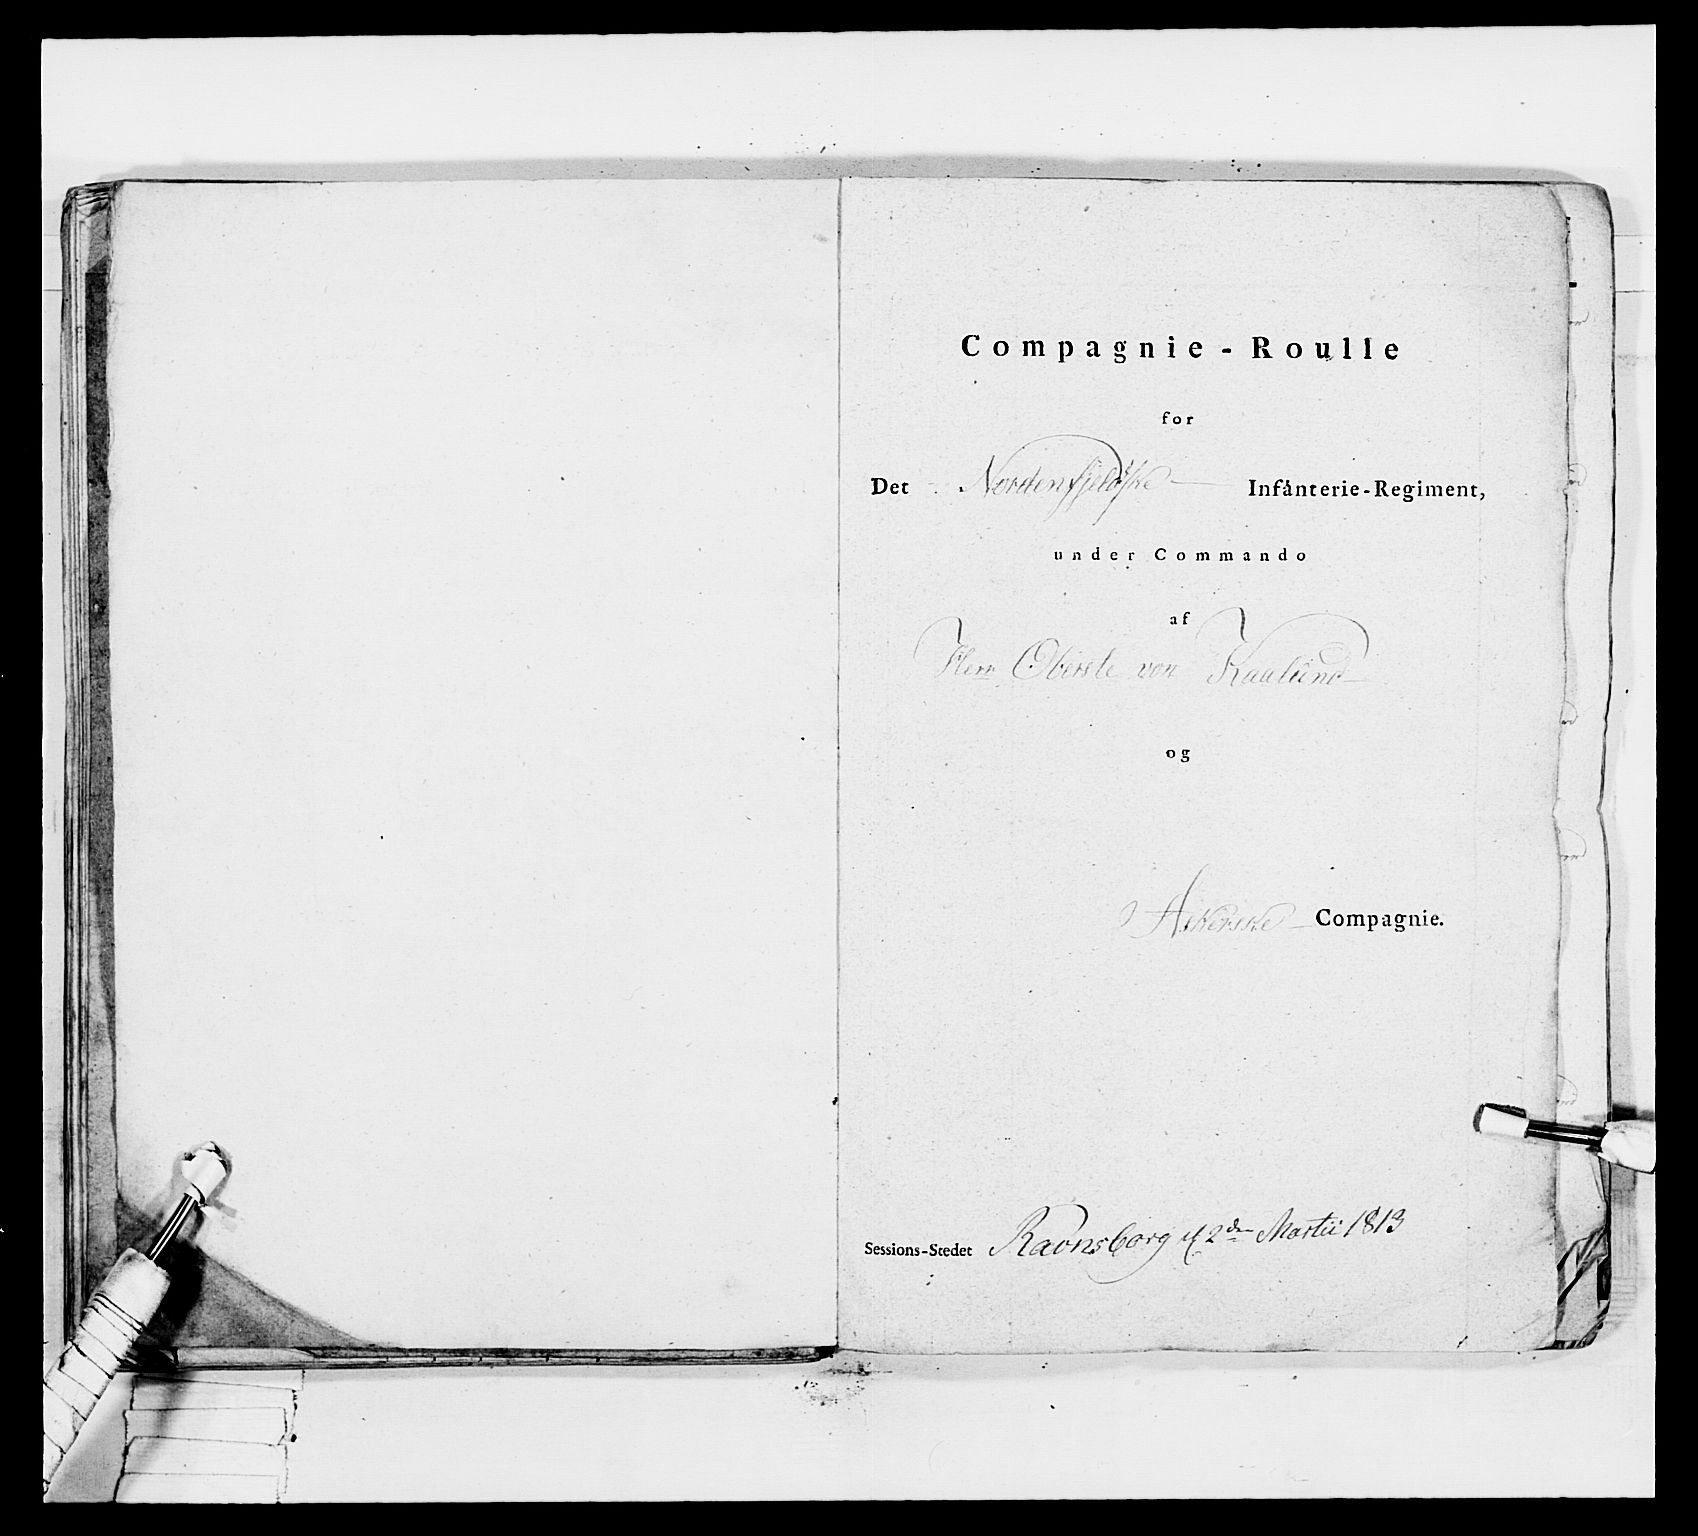 Compagnie-Roulle
for
Det Nordenfjeldske Infanterie-Regiment,
under Commando
af
Herr Oberste von Kaalund
og
Askerske Compagnie.
Sessions-Stedet Ravnsborg d 2den Martii 1813